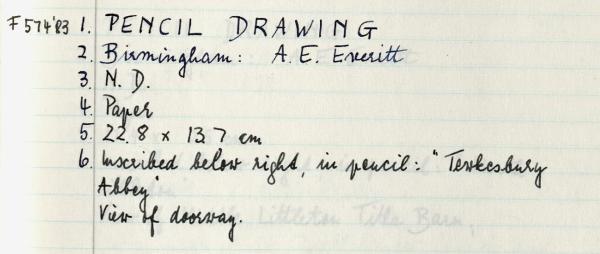 F574'83 1. PENCIL DRAWING
2. Birmingham: A. E. Everitt
3. N. D.
4. Paper
5. 22.8 x 13.7 cm
6. Inscribed below right, in pencil: "Tewkesbury
Abbey"
View of doorway.